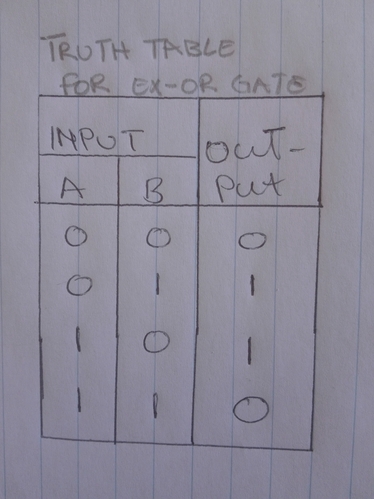 TRUTH TABLE
FOR EX-OR GATE
INPUT OUT-
A B PUT
0 0 0
0 1 1
1 0 1
1 1 0